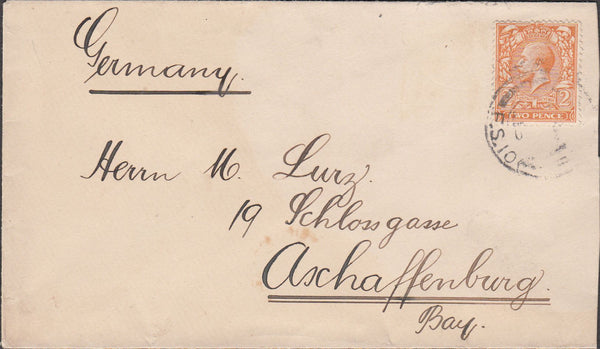 Germany.
TWO PENCE
Herrn M. Lurz.
19 Schlossgasse
Aschaffenburg.
Bay.